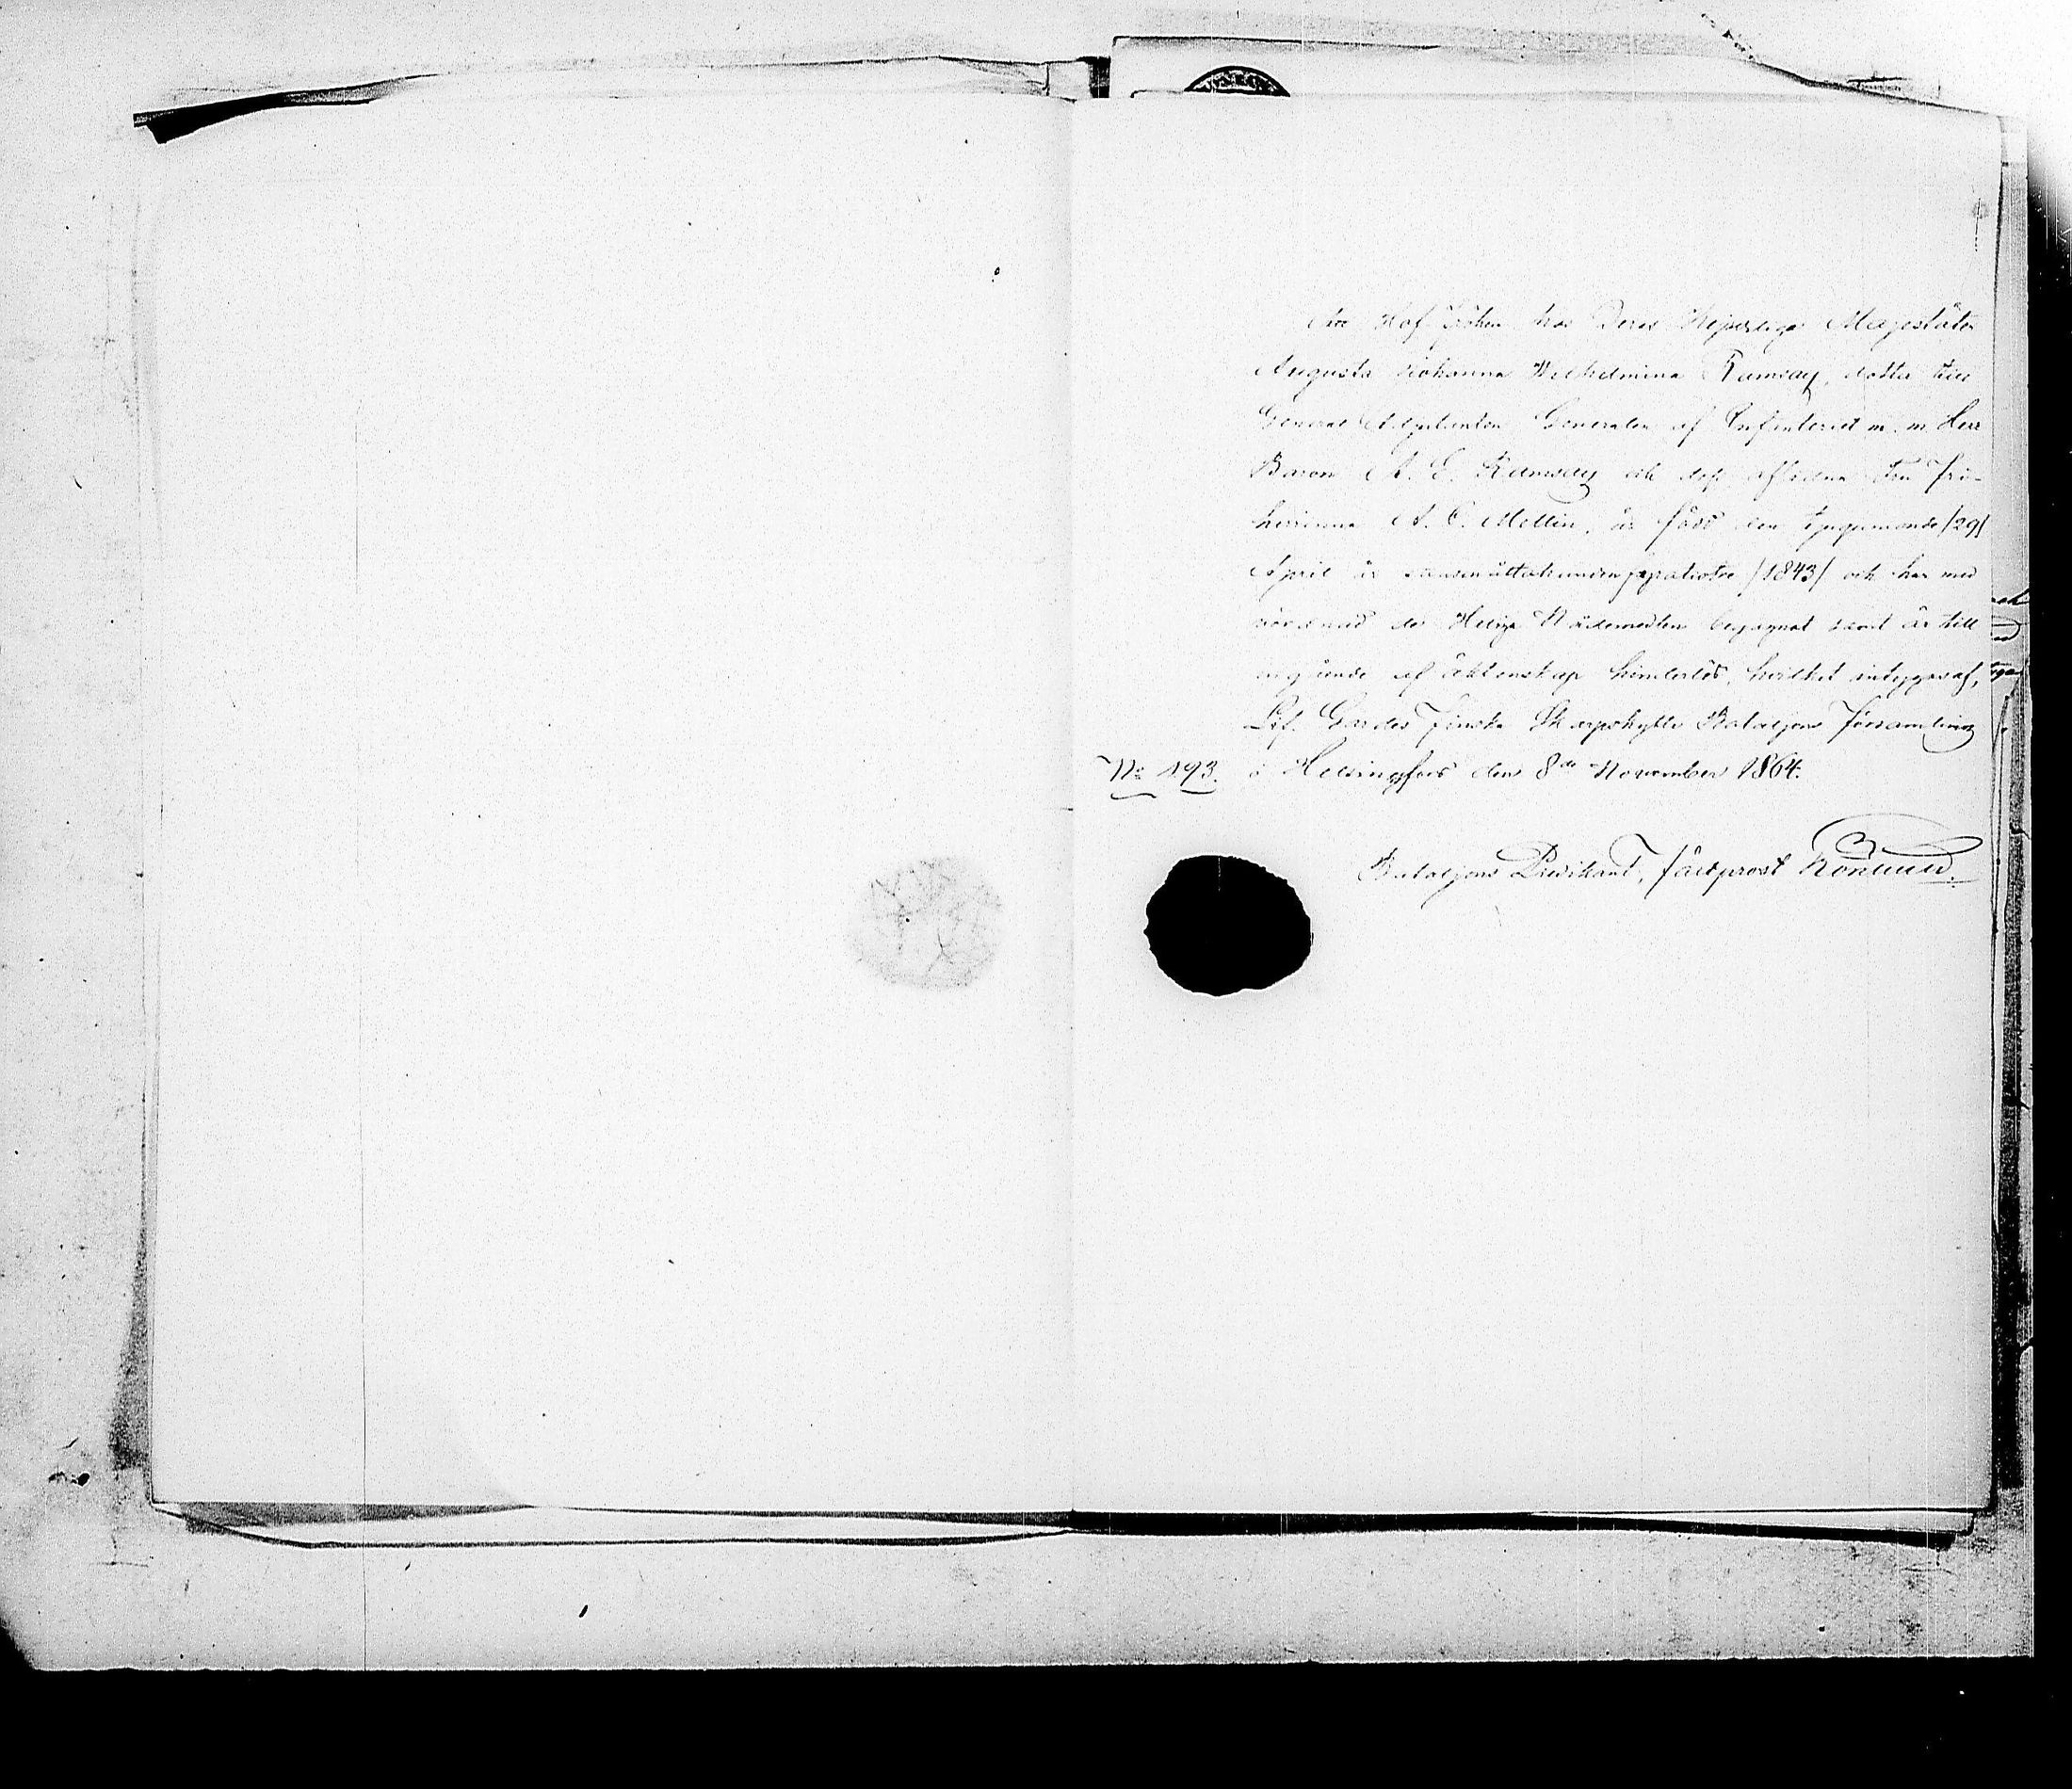 Att Hof fröken hos Deras Kejserliga Majestäter
Augusta Johanna Wilhelmina Ramsay, dotter till
General Adjutanten Generalen af Infanteriet m. m. Herr
Baron A. E. Ramsay och dess aflidna Fru Fri-
herrinna A. C. Mellin, är född den tjugunionde /29/
April år ettusenåttahundrafyratiotre /1843/ och har med
vördnad de Heliga Nådemedlen begagnat samt är till
ingående af äktenskap hinderlös, hvilket intygas af,
Lif-Gardes Finska Skarpskytte Bataljons Församling
N:o 193. i Helsingfors den 8de November 1864.
Bataljons Predikant, Fältprost